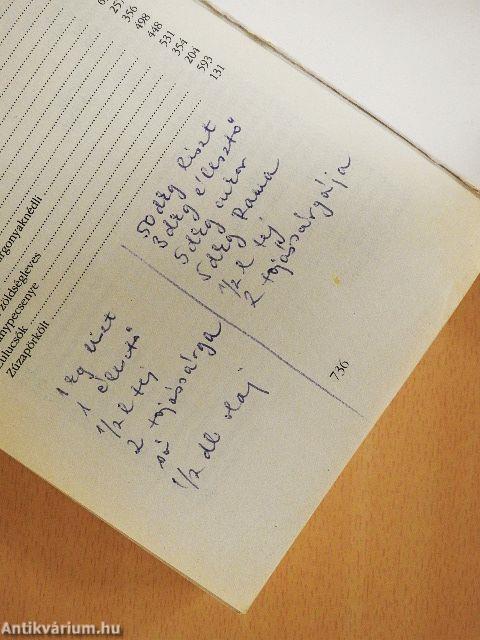 356
498
448
531
354
204
593
131
rgonyaknédli
zöldségleves
nypecsenye
Zúzapörkölt
1 kg liszt
1 élesztő
1/2 l tej
2 tojássárga
só
1/2 dl olaj
50 dkg liszt
3 dkg élesztő
5 dkg cukor
5 dkg Rama
1/2 l tej
2 tojássárgája
736
Antikvárium.hu